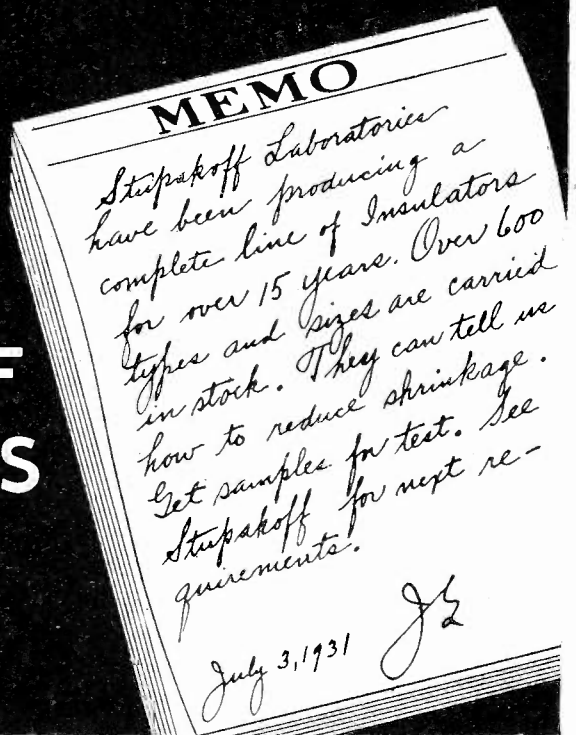 MEMO
Stupakoff Laboratories
have been producing a
complete line of Insulators
for over 15 years. Over 600
types and sizes are carried
in stock. They can tell us
how to reduce shrinkage.
Get samples for test. See
Stupakoff for next re-
quirements.
July 3, 1931
F
S